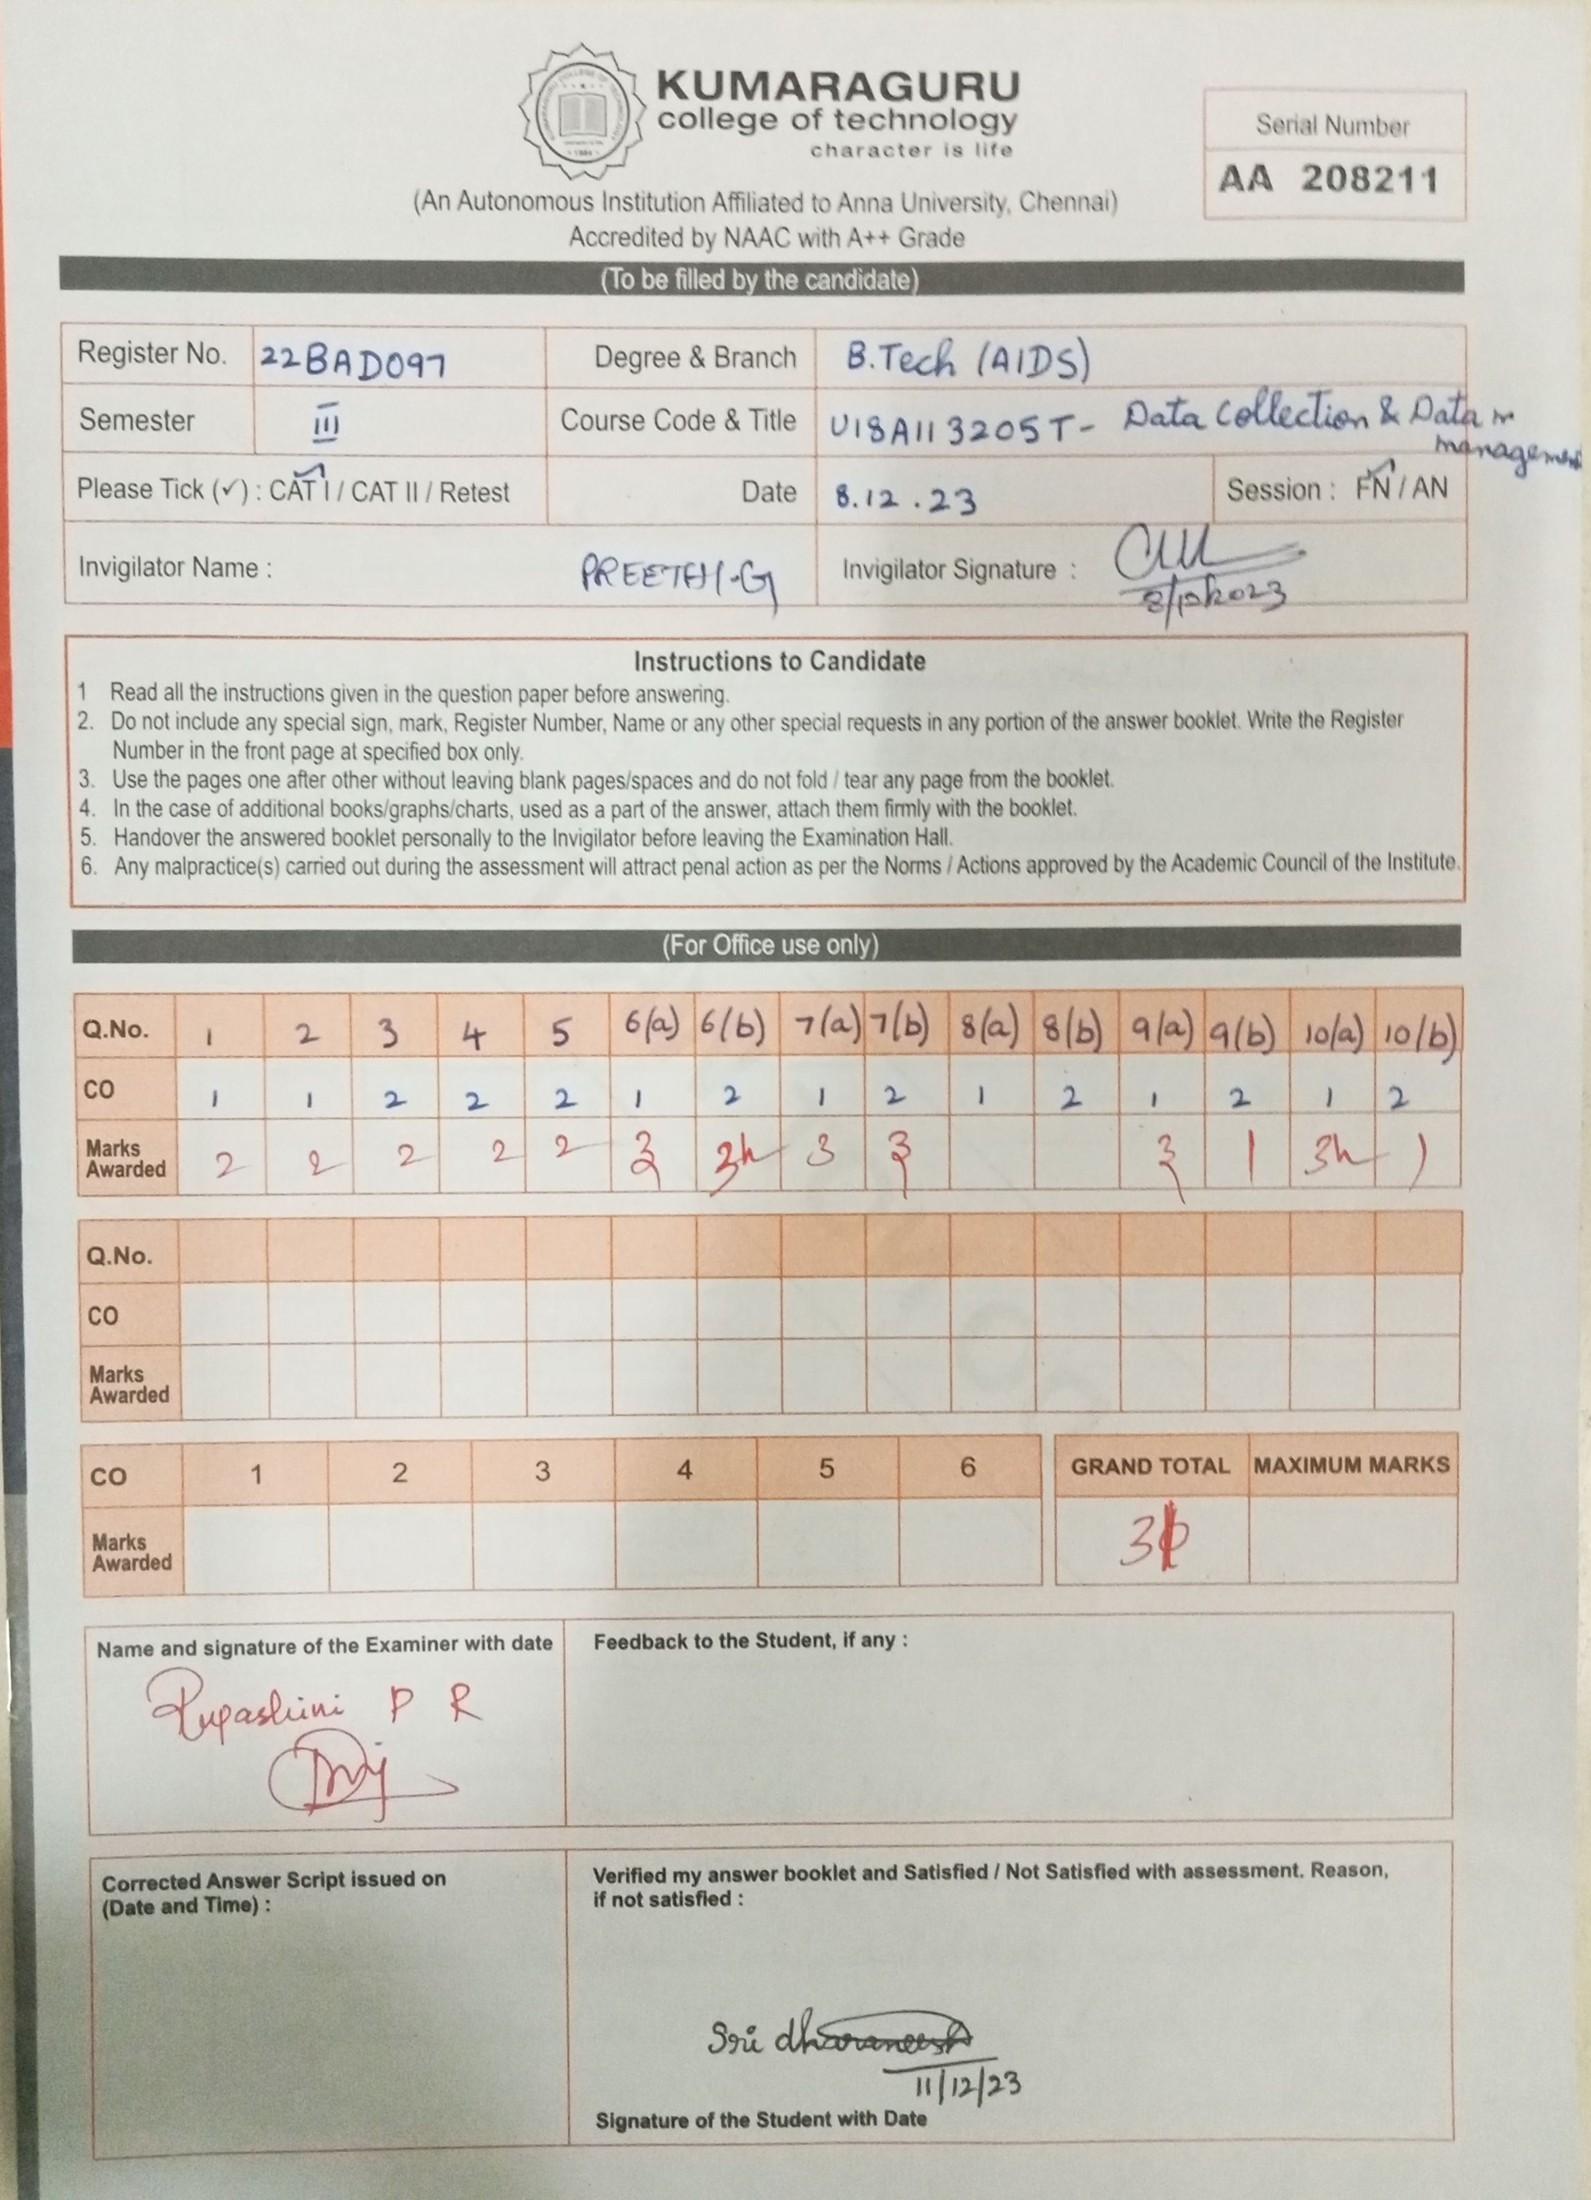 KUMARAGURU
college of technology
character is life
Serial Number
AA 208211
(An Autonomous Institution Affiliated to Anna University, Chennai)
Accredited by NAAC with A++ Grade
(To be filled by the candidate)
Register No. 22BAD097 Degree & Branch B.Tech (AIDS)
Semester III Course Code & Title U18AII3205T - Data Collection & Data
management
Please Tick (✓) : CAT I / CAT II / Retest Date 8.12.23 Session : FN / AN
Invigilator Name : PREETHI-G Invigilator Signature :
Instructions to Candidate
1 Read all the instructions given in the question paper before answering.
2. Do not include any special sign, mark, Register Number, Name or any other special requests in any portion of the answer booklet. Write the Register
Number in the front page at specified box only.
3. Use the pages one after other without leaving blank pages/spaces and do not fold / tear any page from the booklet.
4. In the case of additional books/graphs/charts, used as a part of the answer, attach them firmly with the booklet.
5. Handover the answered booklet personally to the Invigilator before leaving the Examination Hall.
6. Any malpractice(s) carried out during the assessment will attract penal action as per the Norms / Actions approved by the Academic Council of the Institute.
(For Office use only)
Q.No. 1 2 3 4 5 6(a) 6(b) 7(a) 7(b) 8(a) 8(b) 9(a) 9(b) 10(a) 10(b)
CO 1 1 2 2 2 1 2 1 2 1 2 1 2 1 2
Marks
Awarded 2 2 2 2 2 3 3 3 3 1
Q.No.
CO
Marks
Awarded
CO 1 2 3 4 5 6 GRAND TOTAL MAXIMUM MARKS
Marks
Awarded
Name and signature of the Examiner with date
Feedback to the Student, if any :
Rupashini P R
Corrected Answer Script issued on
(Date and Time) :
Verified my answer booklet and Satisfied / Not Satisfied with assessment. Reason,
if not satisfied :
Sri dharaneesh
11/12/23
Signature of the Student with Date